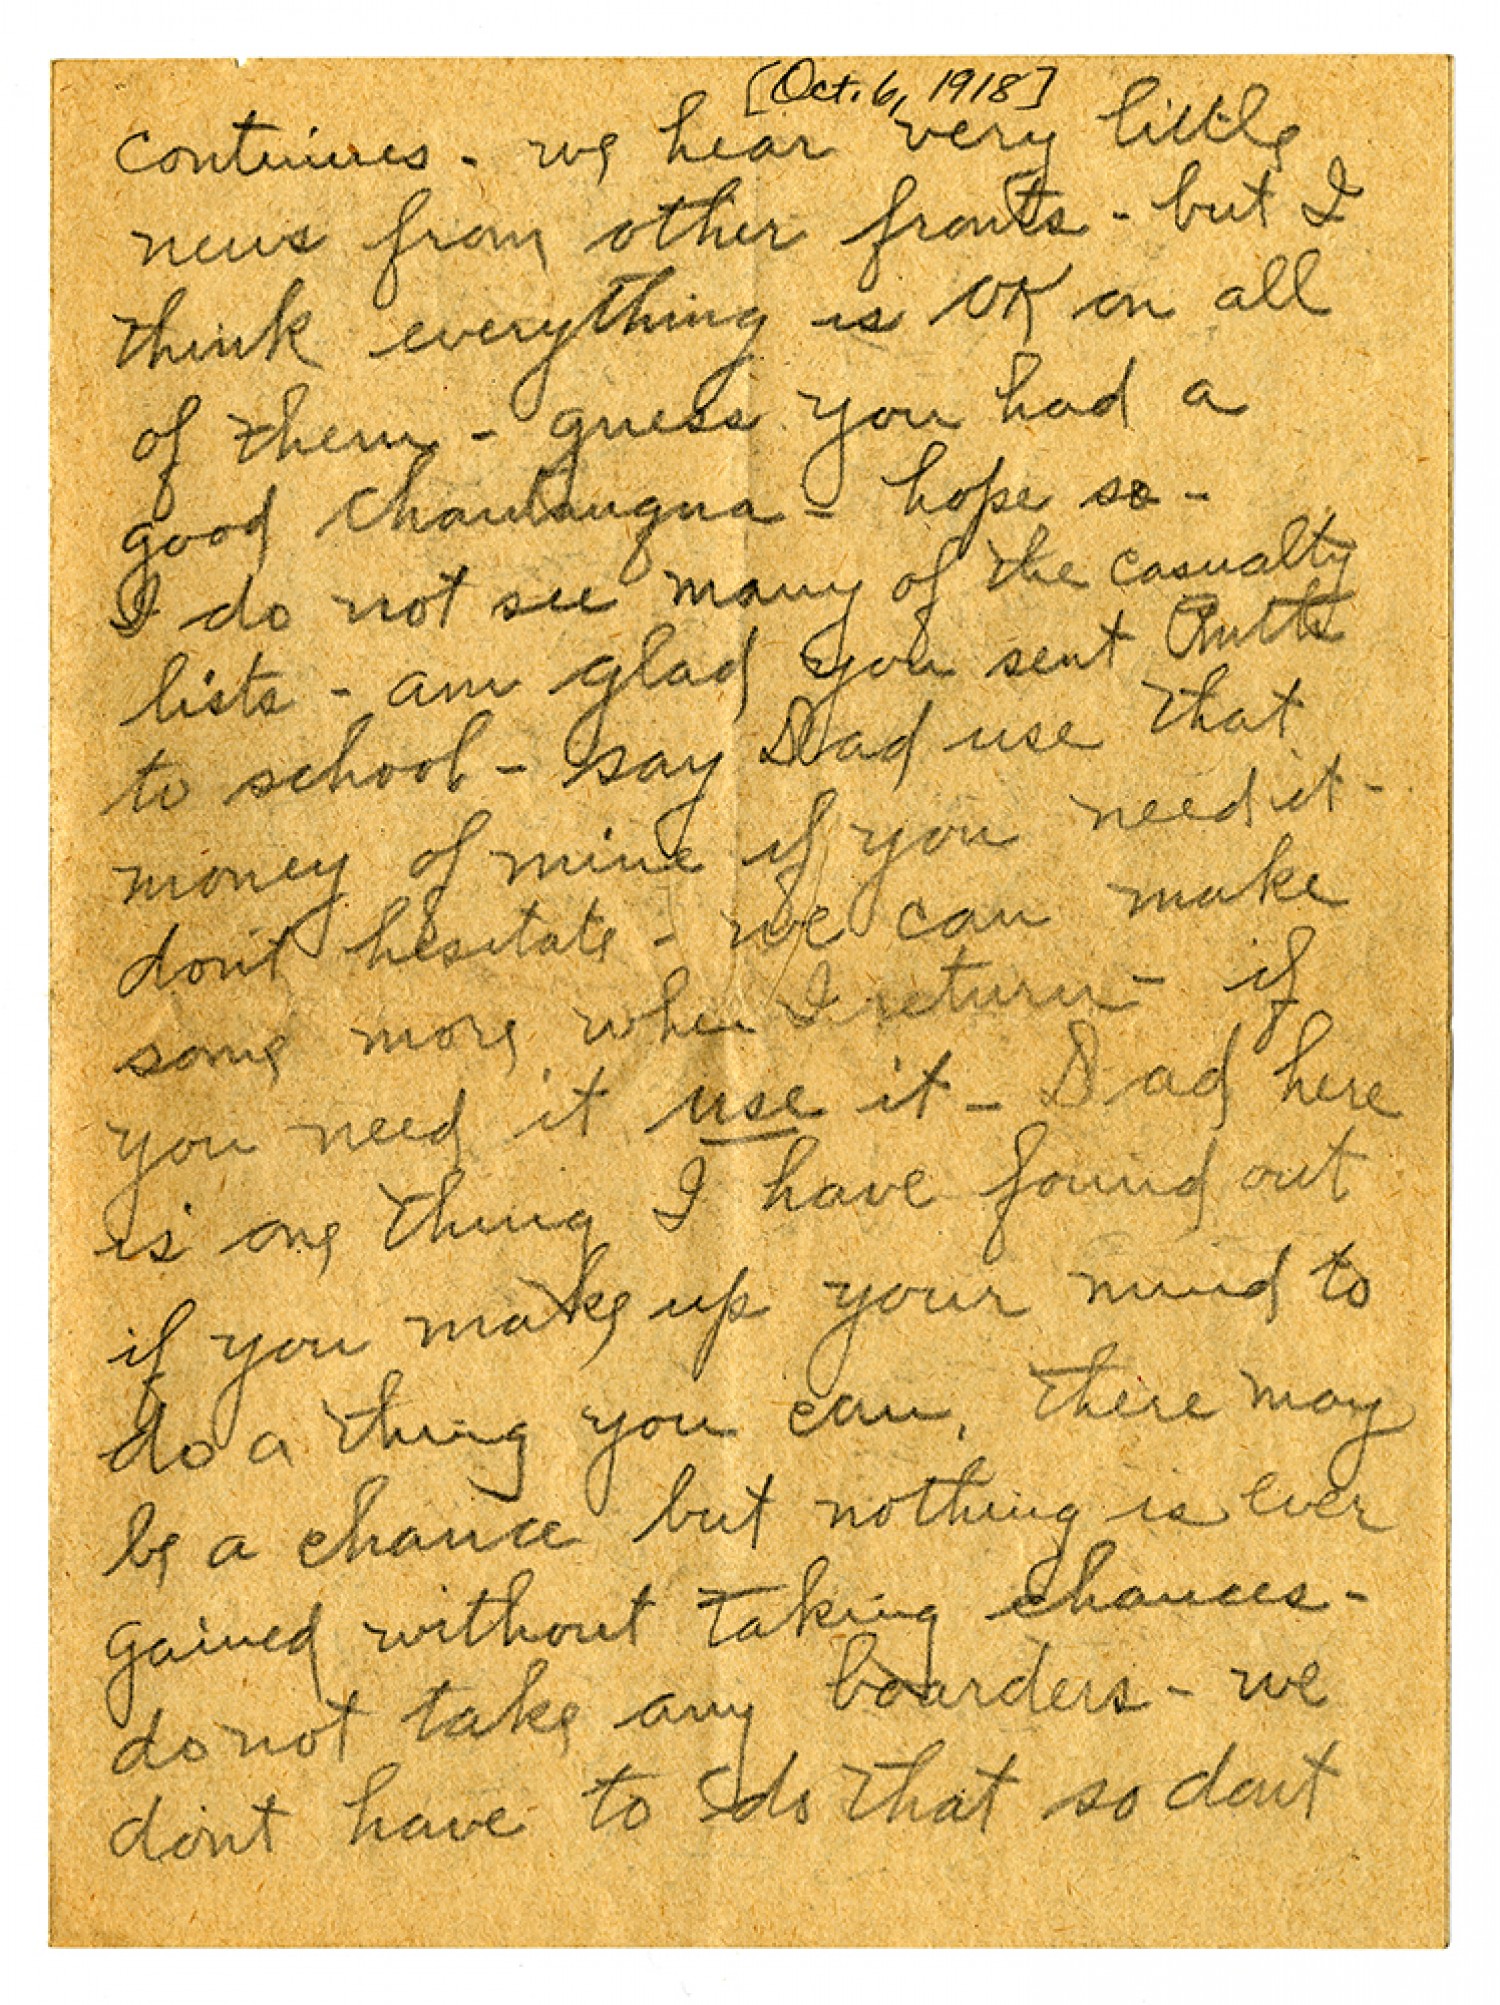 [Oct. 6, 1918]
continues - we hear very little
news from other fronts - but I
think everything is OK on all
of them - guess you had a
good Chautauqua - hope so -
I do not see many of the casualty
lists - am glad you sent Ruth
to school - say Dad use that
money of mine if you need it -
don't hesitate - we can make
some more when I return - if
you need it use it - Dad here
is one thing I have found out
if you make up your mind to
do a thing you can, there may
be a chance but nothing is ever
gained without taking chances -
do not take any boarders - we
don't have to do that so dont